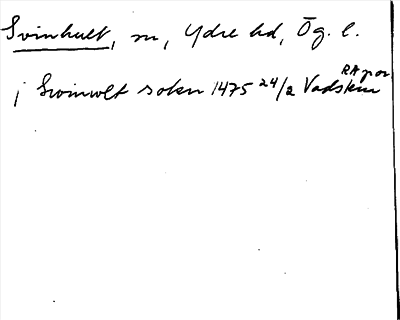 Svinhult, sn, Ydre hd, Ög. l.
i Swinwlt sokn 1475 24/2 Vadstena RA p or